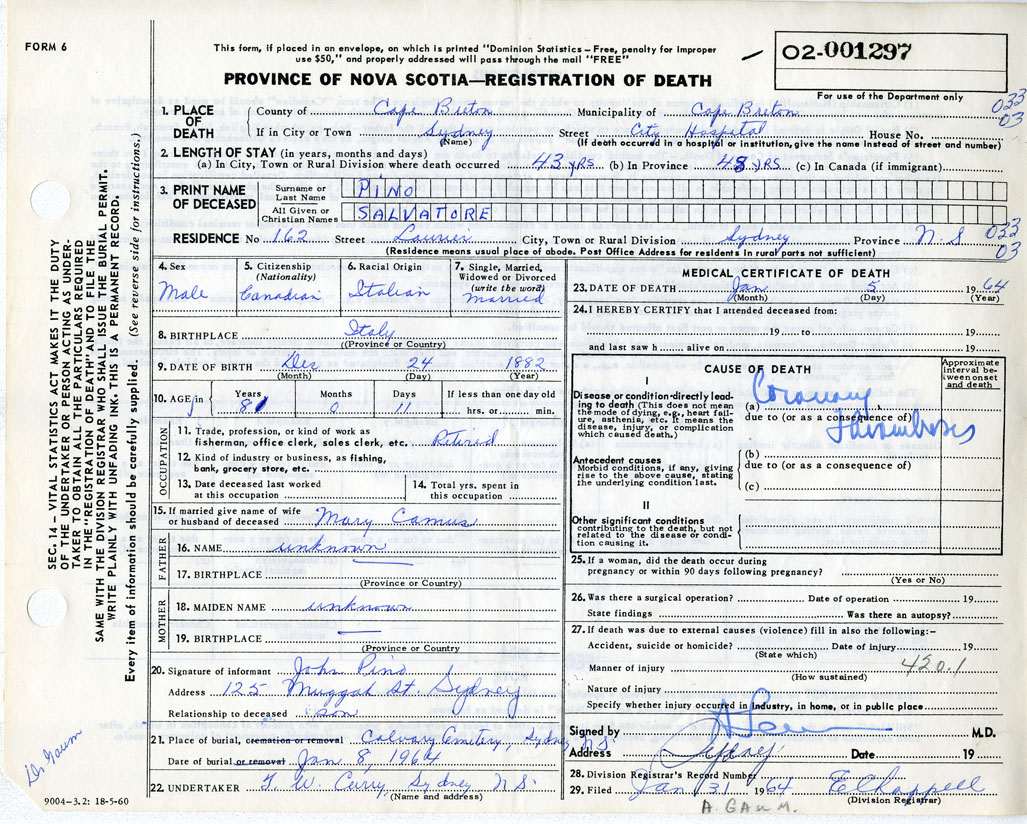 FORM 6
This form, if placed in an envelope, on which is printed "Dominion Statistics – Free, penalty for improper
use $50," and properly addressed will pass through the mail "FREE"
PROVINCE OF NOVA SCOTIA—REGISTRATION OF DEATH
02-001297
For use of the Department only
033
03
1. PLACE OF DEATH
County of Cape Breton Municipality of Cape Breton
If in City or Town Sydney Street City Hospital House No.
(Name) (If death occurred in a hospital or institution, give the name instead of street and number)
2. LENGTH OF STAY (in years, months and days)
(a) In City, Town or Rural Division where death occurred 43 yrs. (b) In Province 43 yrs (c) In Canada (if immigrant)
3. PRINT NAME OF DECEASED
Surname or Last Name PINO
All Given or Christian Names SALVATORE
RESIDENCE No 162 Street Laurier City, Town or Rural Division Sydney Province N.S 033
03
(Residence means usual place of abode. Post Office Address for residents in rural parts not sufficient)
4. Sex Male
5. Citizenship (Nationality) Canadian
6. Racial Origin Italian
7. Single, Married, Widowed or Divorced (write the word) Married
8. BIRTHPLACE Italy
(Province or Country)
9. DATE OF BIRTH Dec 24 1882
(Month) (Day) (Year)
10. AGE in Years Months Days If less than one day old
81 0 11 hrs. or min.
OCCUPATION
11. Trade, profession, or kind of work as
fisherman, office clerk, sales clerk, etc. Retired
12. Kind of industry or business, as fishing,
bank, grocery store, etc.
13. Date deceased last worked
at this occupation
14. Total yrs. spent in
this occupation
15. If married give name of wife
or husband of deceased Mary Camus
FATHER
16. NAME unknown
17. BIRTHPLACE —
(Province or Country)
MOTHER
18. MAIDEN NAME unknown
19. BIRTHPLACE —
(Province or Country
20. Signature of informant John Pino
Address 125 Muggah St. Sydney
Relationship to deceased son
21. Place of burial, cremation or removal Calvary Cemetery, Sydney N.S.
Date of burial or removal Jan. 8, 1964
22. UNDERTAKER T. W. Curry, Sydney N.S.
(Name and address)
MEDICAL CERTIFICATE OF DEATH
23. DATE OF DEATH Jan 5 1964
(Month) (Day) (Year)
24. I HEREBY CERTIFY that I attended deceased from:
19 to 19
and last saw h alive on 19
CAUSE OF DEATH
Approximate Interval between onset and death
I
Disease or condition directly leading to death (This does not mean the mode of dying, e.g., heart failure, asthenia, etc. It means the disease, injury, or complication which caused death.)
(a) Coronary
due to (or as a consequence of)
Thrombosis
Antecedent causes
Morbid conditions, if any, giving rise to the above cause, stating the underlying condition last.
(b)
due to (or as a consequence of)
(c)
II
Other significant conditions
contributing to the death, but not related to the disease or condition causing it.
25. If a woman, did the death occur during
pregnancy or within 90 days following pregnancy?
(Yes or No)
26. Was there a surgical operation? Date of operation 19
State findings Was there an autopsy?
27. If death was due to external causes (violence) fill in also the following:–
Accident, suicide or homicide? Date of injury 19
(State which)
Manner of injury 420.1
(How sustained)
Nature of injury
Specify whether injury occurred in industry, in home, or in public place
Signed by M.D.
Address Sydney Date 19
28. Division Registrar's Record Number
29. Filed Jan 31 1964 E Chappell
(Division Registrar)
A. GAUM.
SEC. 14 – VITAL STATISTICS ACT MAKES IT THE DUTY
OF THE UNDERTAKER OR PERSON ACTING AS UNDER-
TAKER TO OBTAIN ALL THE PARTICULARS REQUIRED
IN THE "REGISTRATION OF DEATH" AND TO FILE THE
SAME WITH THE DIVISION REGISTRAR WHO SHALL ISSUE THE BURIAL PERMIT.
WRITE PLAINLY WITH UNFADING INK. THIS IS A PERMANENT RECORD.
Every item of information should be carefully supplied. (See reverse side for instructions.)
Dr Gaum
9004–3.2: 18-5-60